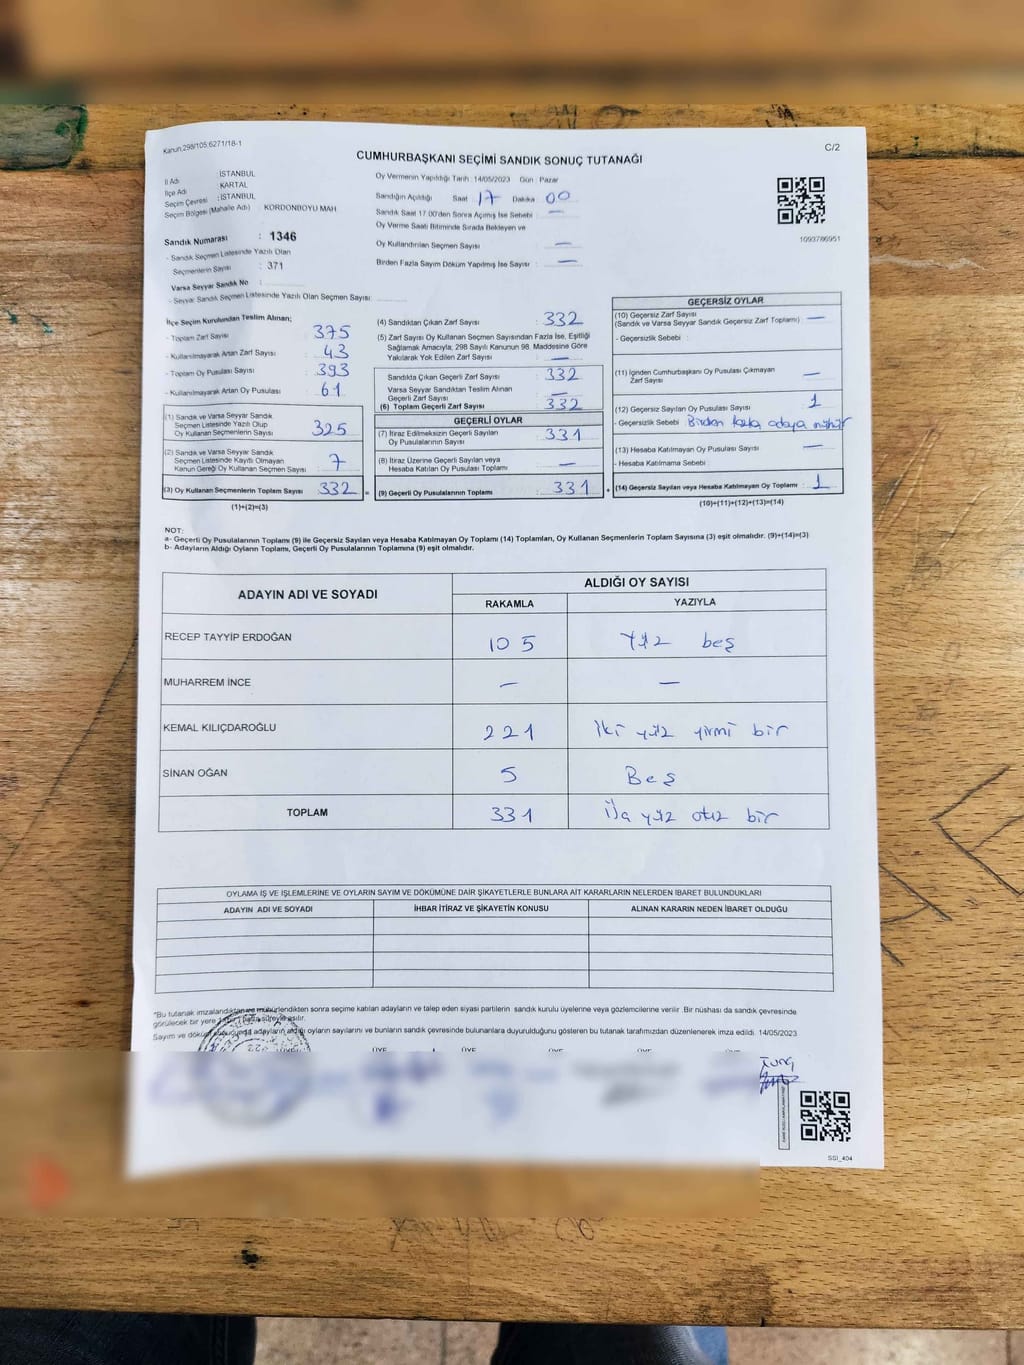 Kanun:298/105;6271/18-1
C/2
CUMHURBAŞKANI SEÇİMİ SANDIK SONUÇ TUTANAĞI
İl Adı : İSTANBUL
İlçe Adı : KARTAL
Seçim Çevresi : İSTANBUL
Seçim Bölgesi (Mahalle Adı) : KORDONBOYU MAH
Sandık Numarası : 1346
- Sandık Seçmen Listesinde Yazılı Olan
Seçmenlerin Sayısı : 371
Varsa Seyyar Sandık No :
- Seyyar Sandık Seçmen Listesinde Yazılı Olan Seçmen Sayısı:
Oy Vermenin Yapıldığı Tarih : 14/05/2023 Gün : Pazar
Sandığın Açıldığı Saat 17 Dakika 00
Sandık Saat 17.00'den Sonra Açılmış İse Sebebi : —
Oy Verme Saati Bitiminde Sırada Bekleyen ve
Oy Kullandırılan Seçmen Sayısı : —
Birden Fazla Sayım Döküm Yapılmış İse Sayısı : —
1093786951
İlçe Seçim Kurulundan Teslim Alınan;
- Toplam Zarf Sayısı : 375
- Kullanılmayarak Artan Zarf Sayısı : 43
- Toplam Oy Pusulası Sayısı : 393
- Kullanılmayarak Artan Oy Pusulası : 61
(1) Sandık ve Varsa Seyyar Sandık
Seçmen Listesinde Yazılı Olup
Oy Kullanan Seçmenlerin Sayısı : 325
(2) Sandık ve Varsa Seyyar Sandık
Seçmen Listesinde Kayıtlı Olmayan
Kanun Gereği Oy Kullanan Seçmen Sayısı : 7
(3) Oy Kullanan Seçmenlerin Toplam Sayısı : 332 =
(1)+(2)=(3)
(4) Sandıktan Çıkan Zarf Sayısı : 332
(5) Zarf Sayısı Oy Kullanan Seçmen Sayısından Fazla İse, Eşitliği
Sağlamak Amacıyla, 298 Sayılı Kanunun 98. Maddesine Göre
Yakılarak Yok Edilen Zarf Sayısı : —
Sandıkta Çıkan Geçerli Zarf Sayısı : 332
Varsa Seyyar Sandıktan Teslim Alınan
Geçerli Zarf Sayısı : —
(6) Toplam Geçerli Zarf Sayısı : 332
GEÇERLİ OYLAR
(7) İtiraz Edilmeksizin Geçerli Sayılan
Oy Pusulalarının Sayısı : 331
(8) İtiraz Üzerine Geçerli Sayılan veya
Hesaba Katılan Oy Pusulası Toplamı : —
(9) Geçerli Oy Pusulalarının Toplamı : 331 +
GEÇERSİZ OYLAR
(10) Geçersiz Zarf Sayısı
(Sandık ve Varsa Seyyar Sandık Geçersiz Zarf Toplamı) : —
- Geçersizlik Sebebi :
(11) İçinden Cumhurbaşkanı Oy Pusulası Çıkmayan
Zarf Sayısı : —
(12) Geçersiz Sayılan Oy Pusulası Sayısı : 1
- Geçersizlik Sebebi : Birden fazla adaya mühür
(13) Hesaba Katılmayan Oy Pusulası Sayısı : —
- Hesaba Katılmama Sebebi :
(14) Geçersiz Sayılan veya Hesaba Katılmayan Oy Toplamı : 1
(10)+(11)+(12)+(13)=(14)
NOT:
a- Geçerli Oy Pusulalarının Toplamı (9) ile Geçersiz Sayılan veya Hesaba Katılmayan Oy Toplamı (14) Toplamları, Oy Kullanan Seçmenlerin Toplam Sayısına (3) eşit olmalıdır. (9)+(14)=(3)
b- Adayların Aldığı Oyların Toplamı, Geçerli Oy Pusulalarının Toplamına (9) eşit olmalıdır.
ADAYIN ADI VE SOYADI ALDIĞI OY SAYISI
RAKAMLA YAZIYLA
RECEP TAYYİP ERDOĞAN 105 Yüz beş
MUHARREM İNCE — —
KEMAL KILIÇDAROĞLU 221 iki yüz yirmi bir
SİNAN OĞAN 5 Beş
TOPLAM 331 yüz otuz bir
OYLAMA İŞ VE İŞLEMLERİNE VE OYLARIN SAYIM VE DÖKÜMÜNE DAİR ŞİKAYETLERLE BUNLARA AİT KARARLARIN NELERDEN İBARET BULUNDUKLARI
ADAYIN ADI VE SOYADI İHBAR İTİRAZ VE ŞİKAYETİN KONUSU ALINAN KARARIN NEDEN İBARET OLDUĞU
"Bu tutanak imzalandıktan ve mühürlendikten sonra seçime katılan adayların ve talep eden siyasi partilerin sandık kurulu üyelerine veya gözlemcilerine verilir. Bir nüshası da sandık çevresinde
görülecek bir yere süreyle asılır.
Sayım ve döküm sonucunda adayların aldığı oyların sayılarını ve bunların sandık çevresinde bulunanlara duyurulduğunu gösteren bu tutanak tarafımızdan düzenlenerek imza edildi. 14/05/2023
ÜYE ÜYE ÜYE ÜYE ÜYE ÜYE
SSI_404